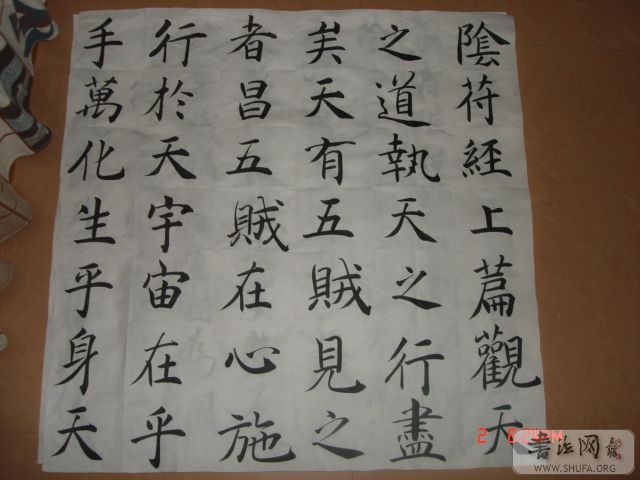 陰符經上篇觀天
之道執天之行盡
矣天有五賊見之
者昌五賊在心施
行於天宇宙在乎
手萬化生乎身天
書法网
WWW.SHUFA.ORG